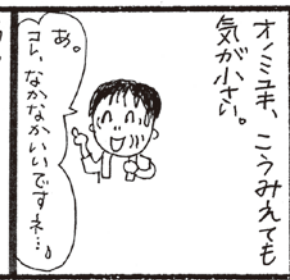 オノミユキ、こうみえても
気が小さい。
あ。
コレ、なかなかいいですネ…♪